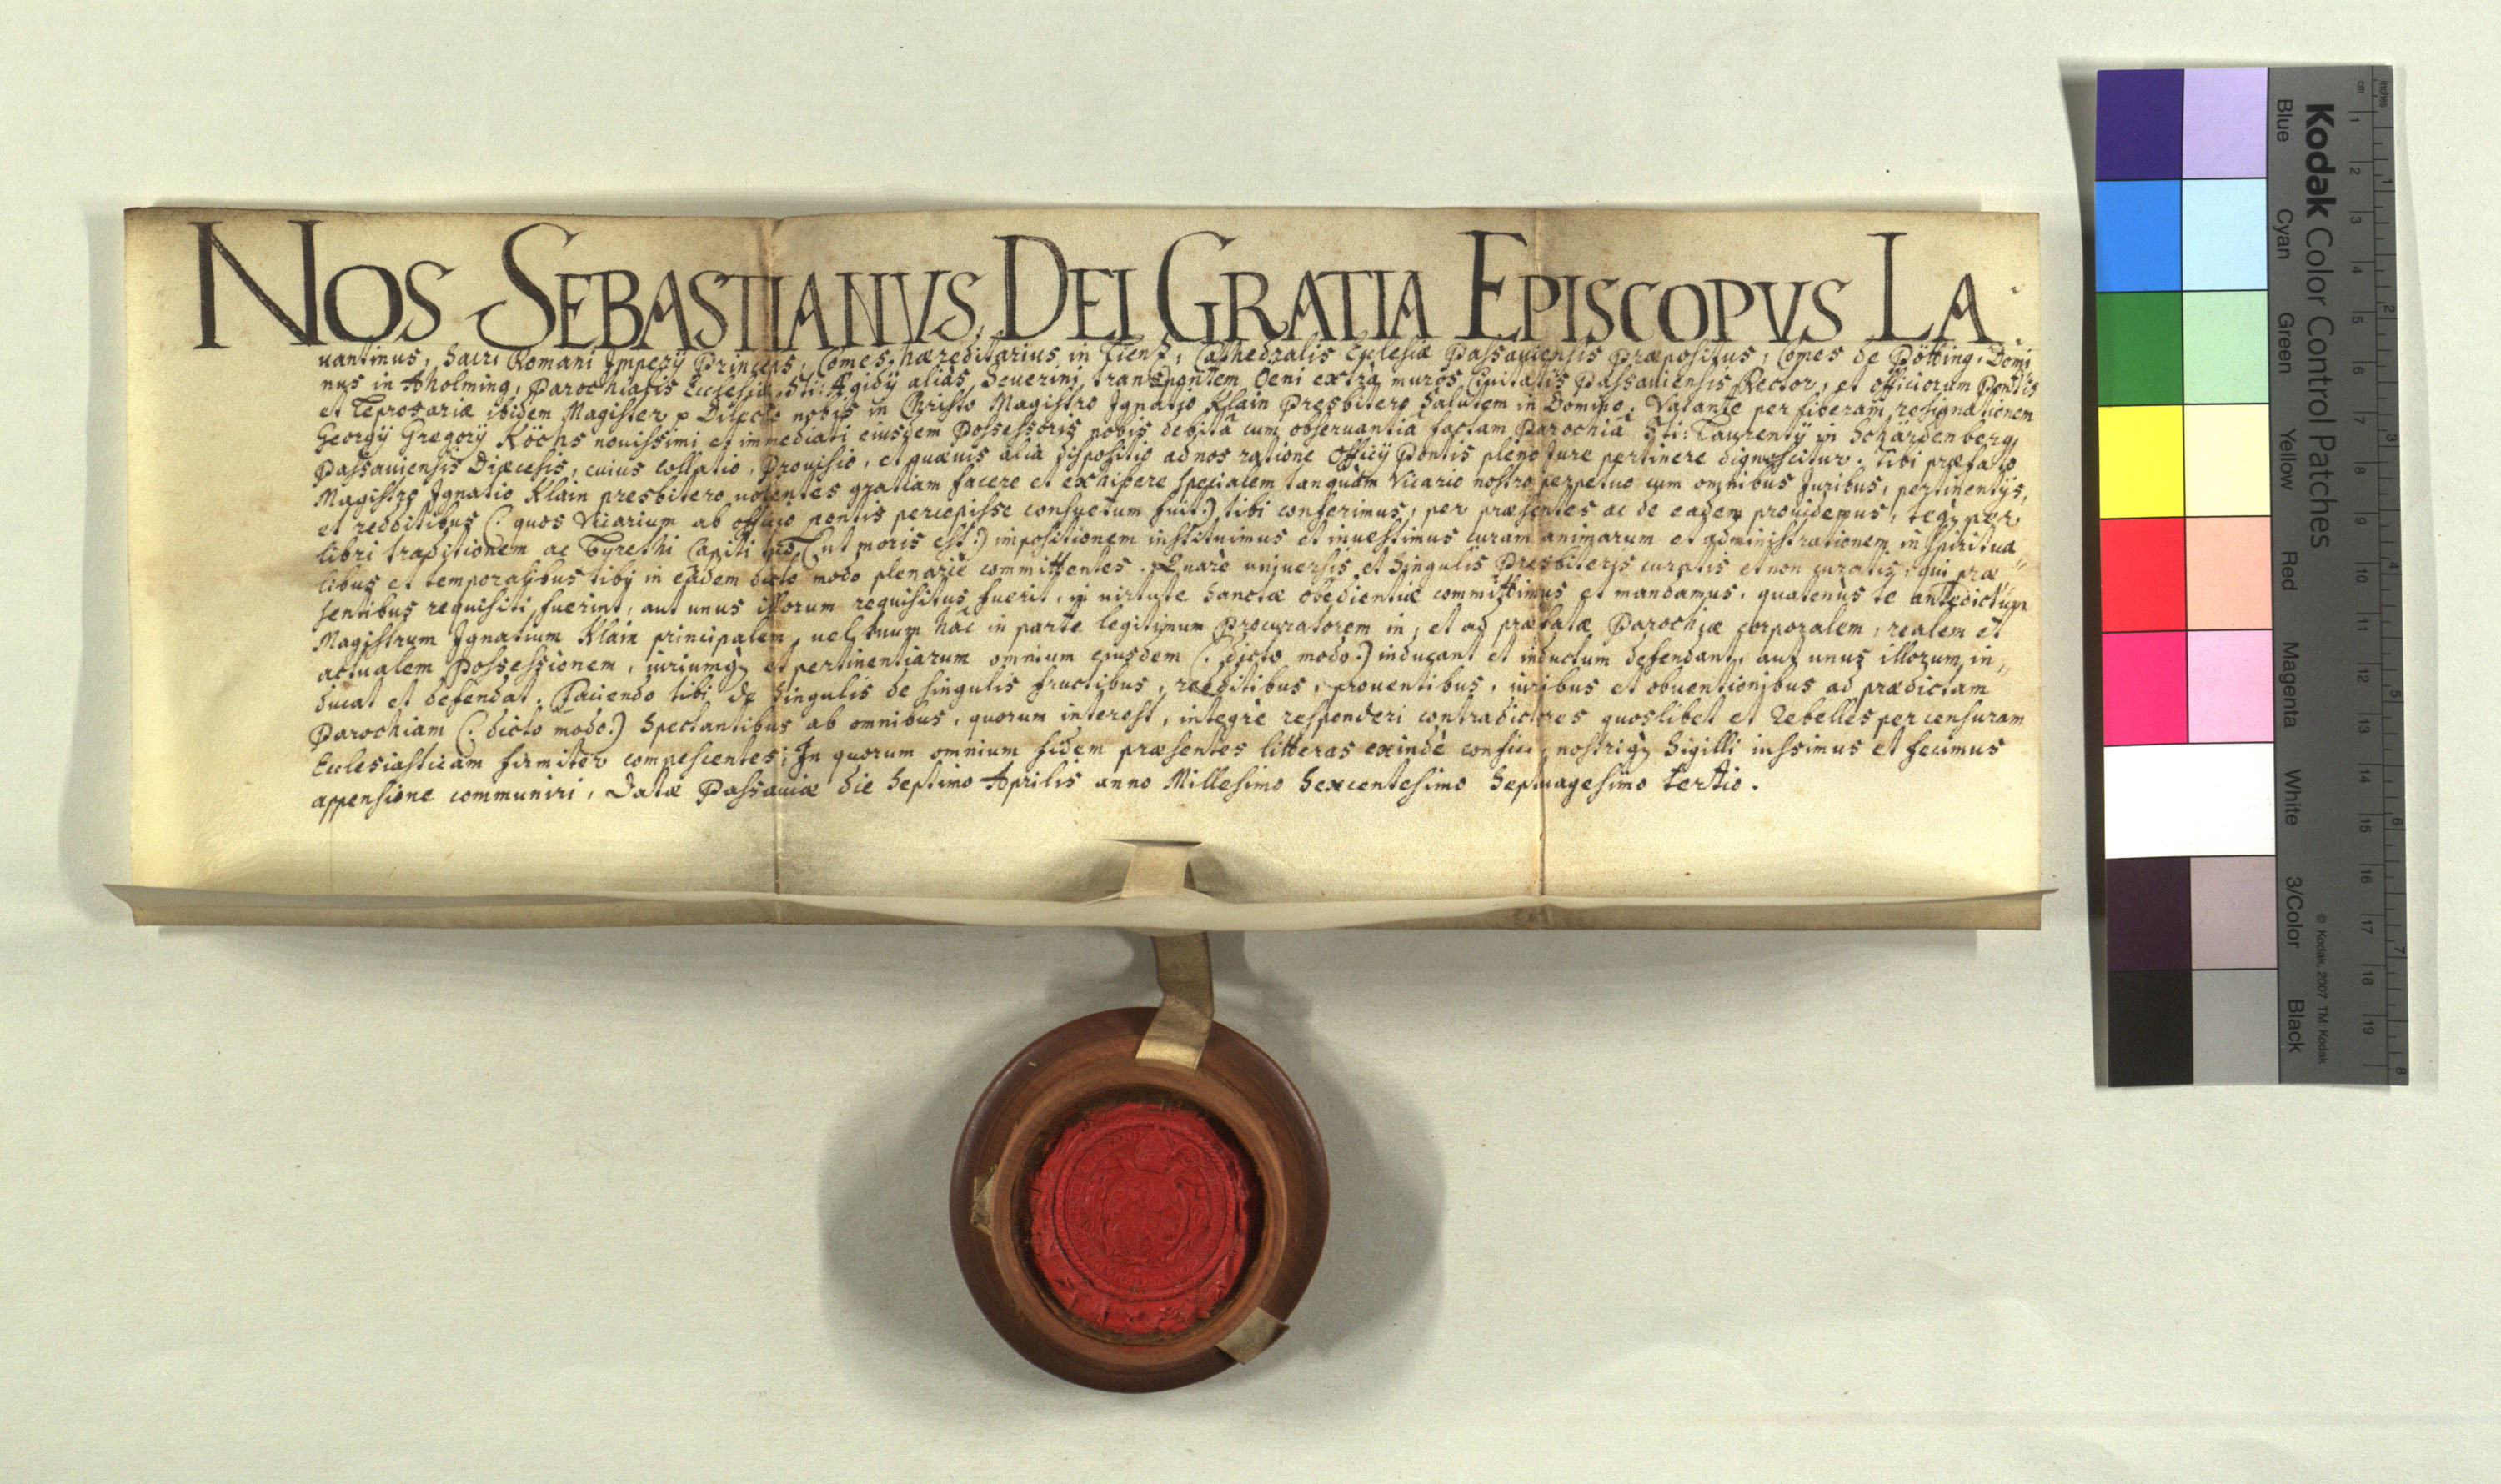 NOS SEBASTIANVS, DEI GRATIA EPISCOPVS LA-
uantinus, Sacri Romani Imperÿ Princeps, Comes hæreditarius in Cathedralis Ecclesiæ Passauiensis Præpositus, Comes de Pötting, Domi
nus in Aholming, Parochialis Ecclesiæ Sti: Ægidÿ aliàs Seuerini trans pontem Oeni extrà muros Ciuitatis Passauiensis Rector, et officiorum Pontis
et Leprosariæ ibidem Magister p Dilecto nobis in Christo Magistro Ignatio Klain Presbitero Salutem in Domino. Vacante per liberam resignationem
Georgÿ Gregorÿ Köchs nouissimi et immediati eiusdem Possessoris nobis debità cum obseruantià factam Parochià Sti: Laurentÿ in Schärdenberg
Passauiensis Diæcesis, cuius collatio, Prouisio, et quæuis alia dispositio ad nos ratione Officÿ Pontis pleno Jure pertinere dignoscitur. Tibi præfato
Magistro Ignatio Klain presbitero uolentes gratiam facere et exhibere specialem tanquàm Vicario nostro perpetuo cum omnibus Juribus, pertinentÿs,
et redditibus (: quos Vicarium ab officio pontis percepisse consuetum fuit:) tibi conferimus, per præsentes ac de eadem prouidemus, teqꝫ per
libri traditionem ac Byrethi Capiti (: ut moris est:) impositionem instituimus et inuestimus curam animarum et administrationem in spiritua
libus et temporalibus tibÿ in eadem dicto modo plenariè committentes. Quarè uniuersis et Singulis Presbiteris curatis et non curatis, qui præ
sentibus requisiti fuerint, aut unus illorum requisitus fuerit, in uirtute Sanctæ obedientiæ committimus et mandamus, quatenùs te antedictum
Magistrum Ignatium Klain principalem, uel tuum hac in parte legitimum Procuratorem in, et ad præfatæ Parochiæ corporalem, realem et
actualem Possessionem, iuriumqꝫ et pertinentiarum omnium eiusdem (: dicto modo:) inducant et inductum defendant, aut unus illorum in
ducat et defendat. Faciendo tibi de Singulis de singulis fructibus, redditibus, prouentibus, iuribus et obuentionibus ad prædictam
Parochiam (: dicto modo:) Spectantibus ab omnibus, quorum interest, integrè responderi contradictores quoslibet et Rebelles per censuram
Ecclesiasticam firmiter compescentes; In quorum omnium fidem præsentes litteras exindè confici, nostriqꝫ Sigilli iussimus et fecimus
appensione communiri, Datæ Passauiæ die Septimo Aprilis anno Millesimo Sexcentesimo Septuagesimo tertio.
Kodak Color Control Patches
© Kodak, 2007 TM: Kodak
Blue Cyan Green Yellow Red Magenta White 3/Color Black
cm 1 2 3 4 5 6 7 8 9 10 11 12 13 14 15 16 17 18 19
inches 1 2 3 4 5 6 7 8